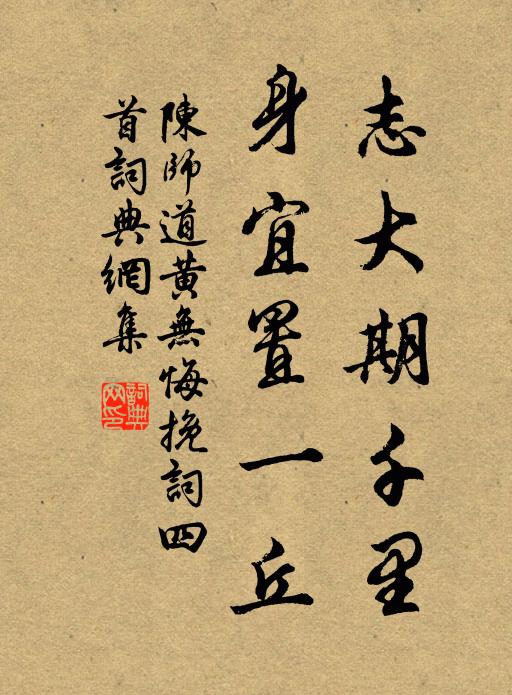 志大期千里
身宜置一丘
陳師道黃無悔挽詞四
首詞典網集
詞典網印